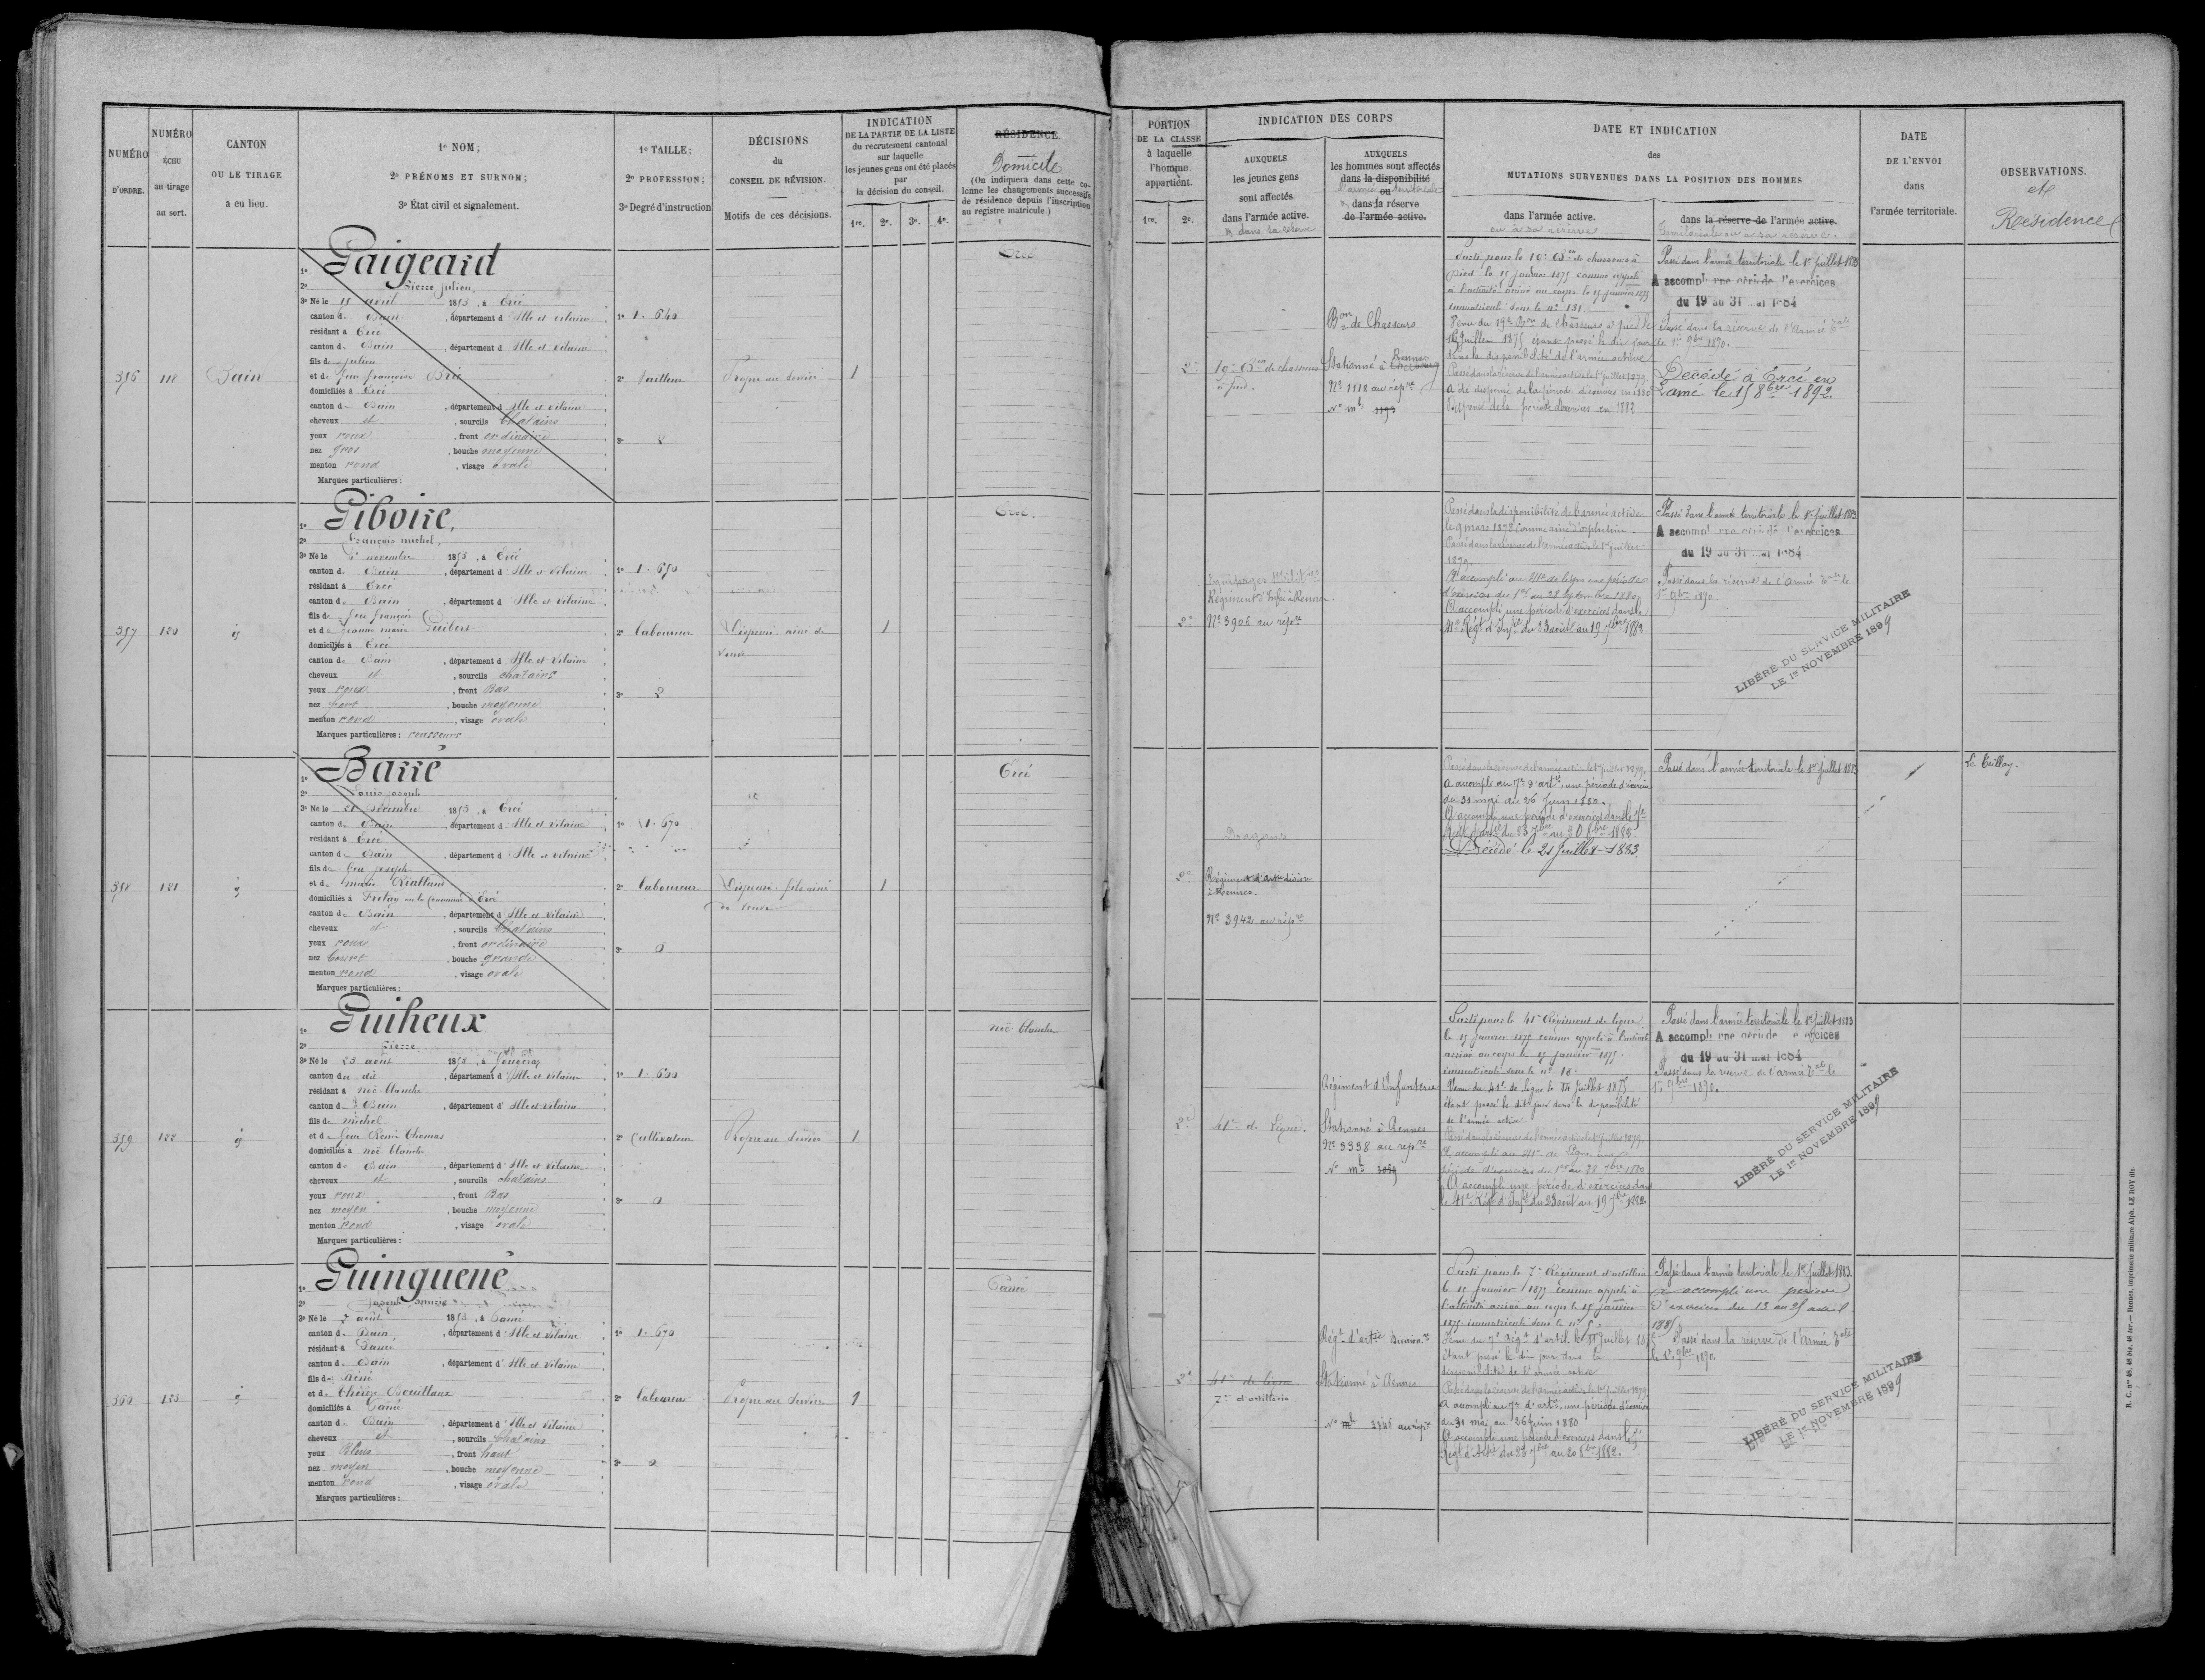 NUMÉRO D'ORDRE.
NUMÉRO ÉCHU au tirage au sort.
CANTON OU LE TIRAGE a eu lieu.
1º NOM;
2º PRÉNOMS ET SURNOM;
3º État civil et signalement.
1º TAILLE;
2º PROFESSION;
3º Degré d'instruction
DÉCISIONS du CONSEIL DE RÉVISION.
Motifs de ces décisions.
INDICATION DE LA PARTIE DE LA LISTE du recrutement cantonal sur laquelle les jeunes gens ont été placés par la décision du conseil.
1re. 2e. 3e. 4e.
RÉSIDENCE.
Domicile
(On indiquera dans cette colonne les changements successifs de résidence depuis l'inscription au registre matricule.)
PORTION DE LA CLASSE à laquelle l'homme appartient.
1re. 2e.
INDICATION DES CORPS
AUXQUELS les jeunes gens sont affectés dans l'armée active.
& dans sa réserve
AUXQUELS les hommes sont affectés dans la disponibilité ou
l'armée territoriale
dans la réserve de l'armée active.
DATE ET INDICATION des MUTATIONS SURVENUES DANS LA POSITION DES HOMMES
dans l'armée active.
ou à sa réserve
dans la réserve de l'armée active.
territoriale ou à sa réserve.
DATE DE L'ENVOI dans l'armée territoriale.
OBSERVATIONS.
et
Résidence
356
118
Bain
1º Gaigeard
2º Pierre Julien,
3º Né le 11 avril 1853, à Ercé
canton de Bain, département d'Ille et Vilaine
résidant à Ercé
canton de Bain, département d'Ille et Vilaine
fils de Julien
et de feue françoise Brié
domiciliés à Ercé
canton de Bain, département d'Ille et Vilaine
cheveux et, sourcils Chatains
yeux roux, front ordinaire
nez gros, bouche moyenne
menton rond, visage ovale
Marques particulières:
1º 1.640
2º Tailleur
3º 2
Propre au Service
1
Ercé
2e
19e Bon de chasseurs
à pied.
Bon de Chasseurs
Stationné à Rennes
Nº 1118 au répre
Nº mle
Parti pour le 19e Bon de chasseurs à
pied le 15 janvier 1875 comme appelé
à l'activité arrivé au corps le 15 janvier 1875
immatriculé sous le nº 151.
Venu du 19e Bon de chasseurs à pied le
Juillet 1875 étant passé le dit jour
dans la disponibilité de l'armée active
Passé dans la réserve de l'armée active le 1er Juillet 1879
A été dispensé de la période d'exercices en 1880
Dispensé de la période d'exercices en 1882
Passé dans l'armée territoriale le 1er Juillet 1883
A accompli une période d'exercices
du 19 au 31 mai 1884
Passé dans la réserve de l'Armée tale
le 1er 9bre 1890.
Décédé à Ercé en
Lamé le 15 8bre 1892.
357
120
id
1º Giboire,
2º François michel,
3º Né le novembre 1853, à Ercé
canton de Bain, département d'Ille et Vilaine
résidant à Ercé
canton de Bain, département d'Ille et Vilaine
fils de feu françois
et de Jeanne marie Guibert
domiciliés à Ercé
canton de Bain, département d'Ille et Vilaine
cheveux et, sourcils chatains
yeux roux, front Bas
nez fort, bouche moyenne
menton rond, visage ovale
Marques particulières: rousseurs
1º 1.650
2º laboureur
3º 2
Dispensé. ainé de
veuve
1
Ercé.
2e
Equipages Militres
Régiment d'Infrie à Rennes.
Nº 3906 au répre
Passé dans la disponibilité de l'armée active
le 9 mars 1878 comme ainé d'orphelins.
Passé dans la réserve de l'armée active le 1er Juillet
1879.
A accompli au 41e de ligne une période
d'exercices du 1er au 28 Septembre 1880
A accompli une période d'exercices dans le
41e Régt d'Infie du 23 août au 19 7bre 1882.
Passé dans l'armée territoriale le 1er Juillet 1883
A accompli une période d'exercices
du 19 au 31 mai 1884
Passé dans la réserve de l'Armée tale le
1er 9bre 1890.
LIBÉRÉ DU SERVICE MILITAIRE
LE 1er NOVEMBRE 1899
358
121
id
1º Barré
2º Louis Joseph
3º Né le 21 Décembre 1853, à Ercé
canton de Bain, département d'Ille et Vilaine
résidant à Ercé
canton de Bain, département d'Ille et Vilaine
fils de feu Joseph
et de marie Riallan
domiciliés à Commune d'Ercé
canton de Bain, département d'Ille et Vilaine
cheveux et, sourcils Chatains
yeux roux, front ordinaire
nez Court, bouche grande
menton rond, visage ovale
Marques particulières:
1º 1.670
2º laboureur
3º 0
Dispensé. fils ainé
de veuve
1
Ercé
2e
Dragons
Régiment d'Artie division
à Rennes.
Nº 3942 au répre
Passé dans la réserve de l'armée active le 1er Juillet 1879,
A accompli au 7e d'artie, une période d'exercices
du 31 mai au 26 Juin 1880.
A accompli une période d'exercices dans le 7e
Régt d'artie du 23 7bre au 20 8bre 1882.
Décédé le 21 Juillet 1883.
Passé dans l'armée territoriale le 1er Juillet 1883
Le Teillay.
359
122
id
1º Guiheux
2º Pierre
3º Né le 25 août 1853, à
canton du dit, département d'Ille et Vilaine
résidant à noë blanche
canton de Bain, département d'Ille et Vilaine
fils de michel
et de feue Renée Thomas
domiciliés à noë blanche
canton de Bain, département d'Ille et Vilaine
cheveux et, sourcils chatains
yeux roux, front Bas
nez moyen, bouche moyenne
menton rond, visage ovale
Marques particulières:
1º 1.600
2º Cultivateur
3º 0
Propre au Service
1
noë blanche
2e
41e de Ligne.
Régiment d'Infanterie
Stationné à Rennes
Nº 3338 au répre
Nº mle
Parti pour le 41e Régiment de ligne
le 15 janvier 1875 comme appelé à l'activité
arrivé au corps le 15 janvier 1875.
immatriculé sous le nº 18.
Venu du 41e de ligne le Juillet 1875
étant passé le dit jour dans la disponibilité
de l'armée active
Passé dans la réserve de l'armée active le 1er Juillet 1879.
A accompli au 41e de Ligne une
période d'exercices du 1er au 28 7bre 1880
A accompli une période d'exercices dans
le 41e Régt d'Infie du 23 août au 19 7bre 1882.
Passé dans l'armée territoriale le 1er Juillet 1883
A accompli une période d'exercices
du 19 au 31 mai 1884
Passé dans la réserve de l'armée tale le
1er 9bre 1890.
LIBÉRÉ DU SERVICE MILITAIRE
LE 1er NOVEMBRE 1899
360
123
id
1º Guinguené
2º Joseph marie
3º Né le 7 août 1853, à Pancé
canton de Bain, département d'Ille et Vilaine
résidant à Pancé
canton de Bain, département d'Ille et Vilaine
fils de René
et de Thérèse
domiciliés à Pancé
canton de Bain, département d'Ille et Vilaine
cheveux et, sourcils Chatains
yeux Bleus, front haut
nez moyen, bouche moyenne
menton rond, visage ovale
Marques particulières:
1º 1.670
2º laboureur
3º 0
Propre au Service
1
Pancé
2e
41e de ligne
7e d'artillerie
Régt d'artie Divisionre
Stationné à Rennes
Nº mle 3346 au répre
Parti pour le 7e Régiment d'artillerie
le 15 janvier 1875 comme appelé à
l'activité arrivé au corps le 15 janvier
1875 immatriculé sous le nº
Venu du 7e Régt d'artil. le Juillet 1875
étant passé le dit jour dans la
disponibilité de l'armée active
Passé dans la réserve de l'armée active le 1er Juillet 1879
A accompli au 7e d'artie, une période d'exercices
du 31 mai au 26 Juin 1880
A accompli une période d'exercices dans le 7e
Régt d'Artie du 23 7bre au 20 8bre 1882.
Passé dans l'armée territoriale le 1er Juillet 1883.
A accompli une période
d'exercices du 13 au 25 avril
1885
Passé dans la réserve de l'Armée tale
le 1er 9bre 1890.
LIBÉRÉ DU SERVICE MILITAIRE
LE 1er NOVEMBRE 1899
R. C. nos 48, 48 bis, 48 ter. — Rennes, imprimerie militaire Alph. LE ROY fils